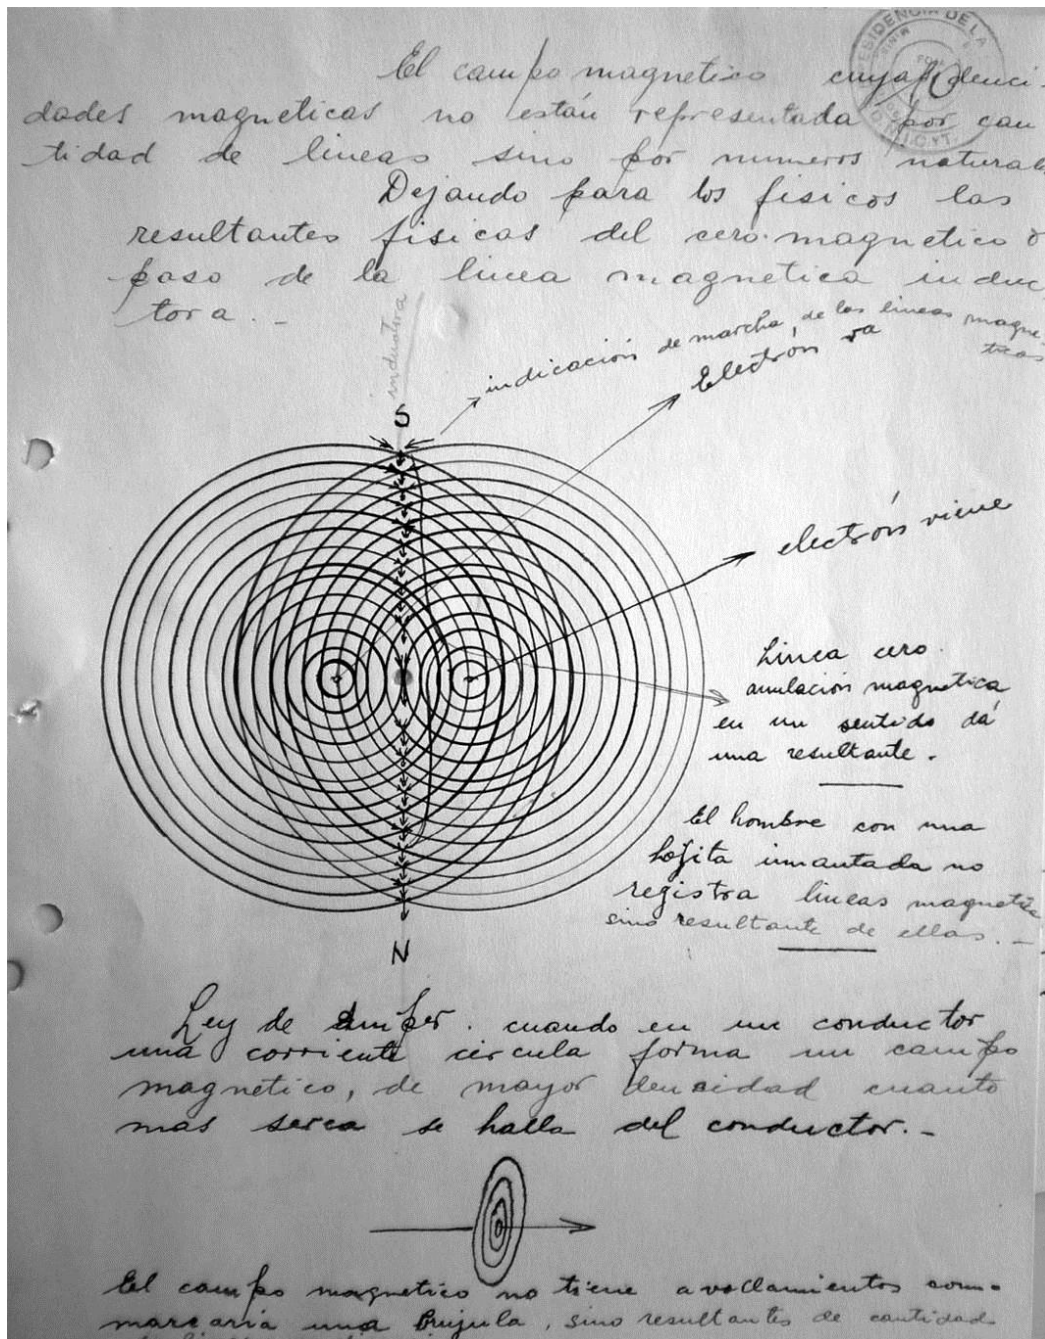 El campo magnetico cuya denci-
dades magneticas no están representada por can
tidad de lineas sino por numeros natural
Dejando para los fisicos las
resultantes fisicas del cero magnetico ó
paso de la linea magnetica induc
tora. -
inductora
indicación de marcha, de las lineas magne-
ticas
Electrón va
S
electrón viene
Linea cero
anulación magnetica
en un sentido dá
una resultante.
El hombre con una
hojita imantada no
registra lineas magnetica
sino resultante de ellas. -
N
Ley de Amper. cuando en un conductor
una corriente circula forma un campo
magnetico, de mayor dencidad cuanto
mas serca se halla del conductor. -
El campo magnetico no tiene avollamientos como
marcaria una brujula, sino resultantes de cantidad
PRESIDENCIA DE LA